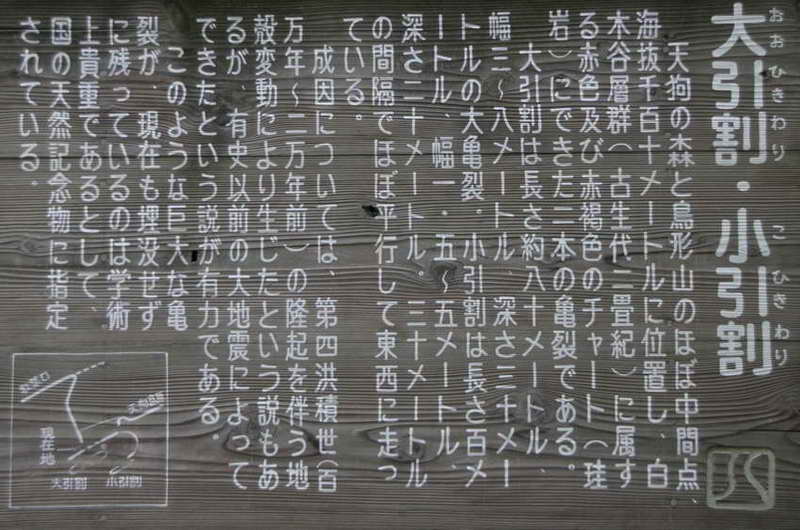 大引割・小引割
おおひきわり こひきわり
天狗の森と鳥形山のほぼ中間点
海抜千百十メートルに位置し、白
木谷層群（古生代二畳紀）に属す
る赤色及び赤褐色のチャート（珪
岩）にできた二本の亀裂である。
大引割は長さ約八十メートル、
幅三〜八メートル、深さ三十メー
トルの大亀裂。小引割は長さ百メ
ートル、幅一・五〜五メートル、
深さ二十メートル。三十メートル
の間隔でほぼ平行して東西に走っ
ている。
成因については、第四洪積世（百
万年〜二万年前）の隆起を伴う地
殻変動により生じたという説もあ
るが、有史以前の大地震によって
できたという説が有力である。
このような巨大な亀
裂が、現在も埋没せず
に残っているのは学術
上貴重であるとして、
国の天然記念物に指定
されている。
現在地
大引割
小引割